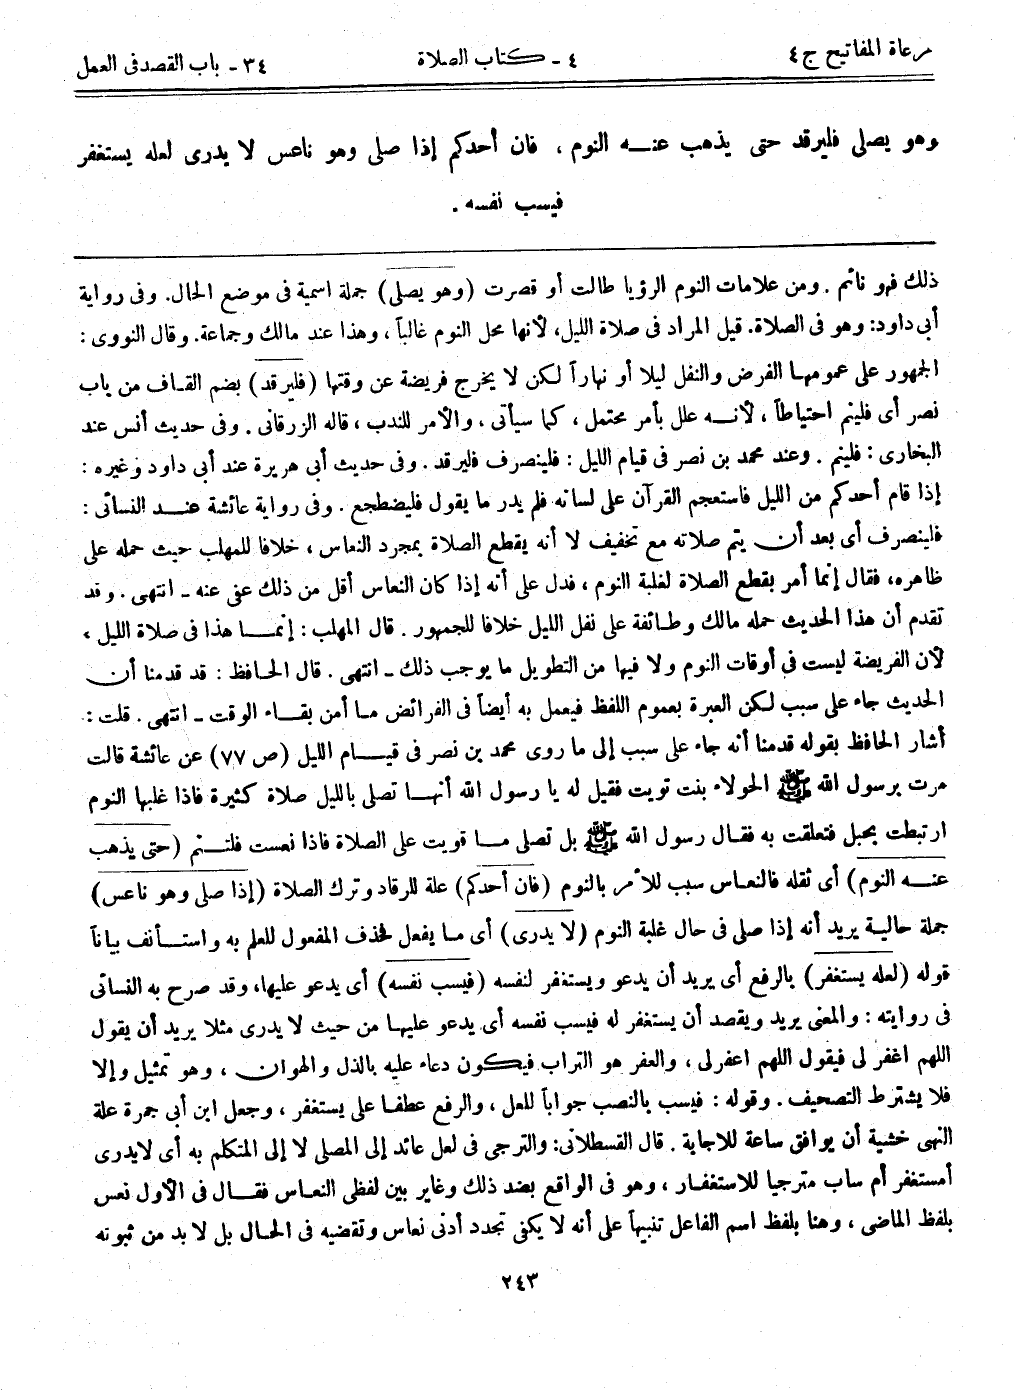 مرعاة المفاتيح ج ٤
٤ - كتاب الصلاة
٣٤ - باب القصد فى العمل
وهو يصلى فليرقد حتى يذهب عنـــه النوم ، فان أحدكم إذا صلى وهو ناعس لا يدرى لعله يستغفر
فيسب نفسه .
ذلك فهو نائم . ومن علامات النوم الرؤيا طالت أو قصرت (وهو يصلى) جملة اسمية فى موضع الحال. وفى رواية
أبى داود: وهو فى الصلاة. قيل المراد فى صلاة الليل، لأنها محل النوم غالباً ، وهذا عند مالك وجماعة. وقال النووى :
الجمهور على عمومهــا الفرض والنفل ليلا أو نهاراً لكن لا يخرج فريضة عن وقتها (فليرقد) بضم القـاف من باب
نصر أى فلينم احتياطاً ، لأنـــه علل بأمر محتمل ، كما سيأتى ، والأمر للندب ، قاله الزرقانى . وفى حديث أنس عند
البخارى : فلينم . وعند محمد بن نصر فى قيام الليل : فلينصرف فليرقد . وفى حديث أبى هريرة عند أبى داود وغيره :
إذا قام أحدكم من الليل فاستعجم القرآن على لسانه فلم يدر ما يقول فليضطجع . وفى رواية عائشة عنـــد النسائى :
فلينصرف أى بعد أن يتم صلاته مع تخفيف لا أنه يقطع الصلاة بمجرد النعاس ، خلافا للمهلب حيث حمله على
ظاهره، فقال إنما أمر بقطع الصلاة لغلبة النوم ، فدل على أنه إذا كان النعاس أقل من ذلك عفى عنه ـ انتهى . وقد
تقدم أن هذا الحديث حمله مالك وطـائفة على نفل الليل خلافا للجمهور . قال المهلب : إنمـــا هذا فى صلاة الليل ،
لأن الفريضة ليست فى أوقات النوم ولا فيها من التطويل ما يوجب ذلك ـ انتهى . قال الحـافظ : قد قدمنا أن
الحديث جاء على سبب لكن العبرة بعموم اللفظ فيعمل به أيضاً فى الفرائض مـا أمن بقـــاء الوقت ـ انتهى . قلت :
أشار الحافظ بقوله قدمنا أنه جاء على سبب إلى ما روى محمد بن نصر فى قيـــام الليل (ص ٧٧) عن عائشة قالت
مرت برسول الله ﷺ الحولاء بنت تويت فقيل له يا رسول الله أنهــا تصلى بالليل صلاة كثيرة فاذا غلبها النوم
ارتبطت بحبل فتعلقت به فقـال رسول الله ﷺ بل تصلى مــا قويت على الصلاة فاذا نعست فلتـــنم (حتى يذهب
عنـــه النوم) أى ثقله فالنعـاس سبب للأمر بالنوم (فان أحدكم) علة للرقاد وترك الصلاة (إذا صلى وهو ناعس)
جملة حاليـة يريد أنه إذا صلى فى حال غلبة النوم (لا يدرى) أى مـا يفعل فحذف المفعول للعلم به واستـأنف بياناً
قوله (لعله يستغفر) بالرفع أى يريد أن يدعو ويستغفر لنفسه (فيسب نفسه) أى يدعو عليها، وقد صرح به النسائى
فى روايته : والمعنى يريد ويقصد أن يستغفر له فيسب نفسه أى يدعو عليهـا من حيث لا يدرى مثلا يريد أن يقول
اللهم اغفر لى فيقول اللهم اعفر لى ، والعفر هو التراب فيكون دعاء عليه بالذل والهوان ، وهو تمثيل وإلا
فلا يشترط التصحيف . وقوله : فيسب بالنصب جواباً للعل ، والرفع عطفـا على يستغفر ، وجعل ابن أبى جمرة علة
النهى خشية أن يوافق ساعة للاجابة . قال القسطلانى: والترجى فى لعل عائد إلى المصلى لا إلى المتكلم به أى لا يدرى
أمستغفر أم ساب مترجيا للاستغفـار ، وهو فى الواقع بضد ذلك وغاير بين لفظى النعـاس فقـال فى الأول نعس
بلفظ الماضى ، وهنا بلفظ اسم الفاعل تنبيهاً على أنه لا يكفى تجدد أدنى نعاس وتقضيه فى الحـال بل لا بد من ثبوته
٢٤٣